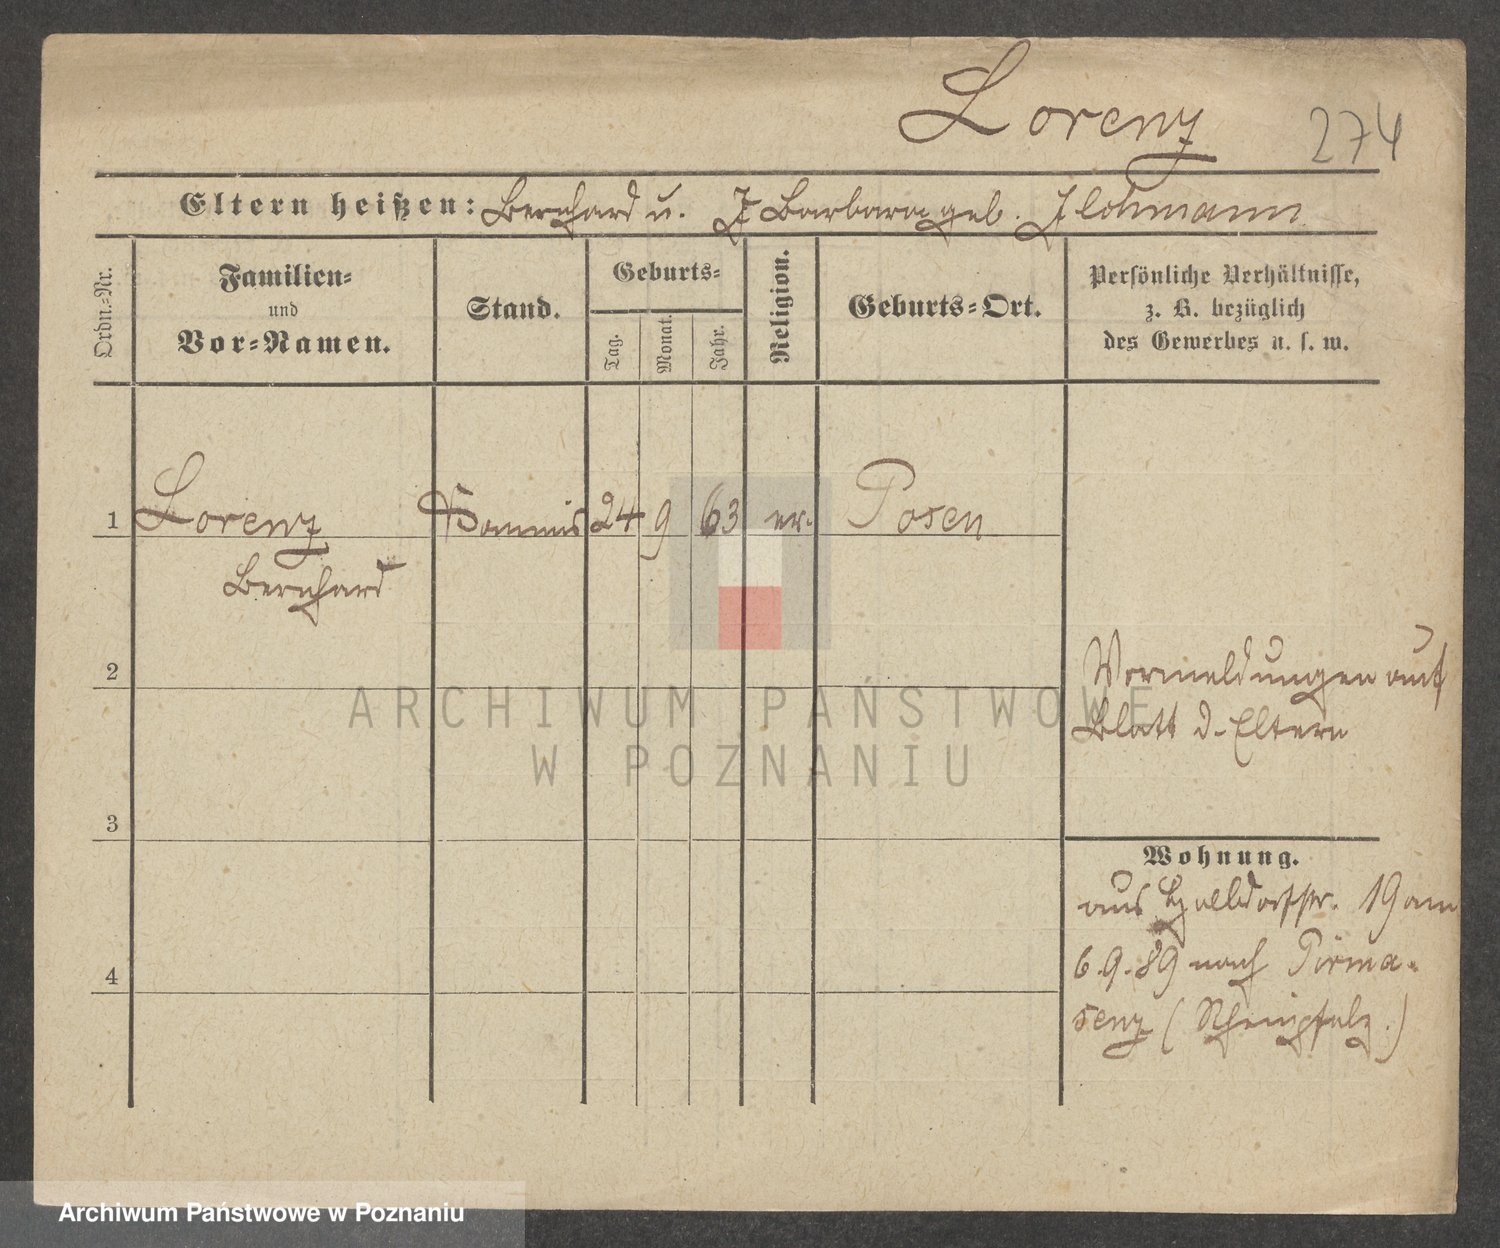 Lorenz 274
Eltern heißen: Bernhard u. Barbara geb. Flohmann
Ordn.-Nr.
Familien-
und
Vor-Namen.
Stand.
Geburts-
Tag.
Monat.
Jahr.
Religion.
Geburts-Ort.
Persönliche Verhältnisse,
z. B. bezüglich
des Gewerbes u. s. w.
1 Lorenz Kommis 24 9 63 ev. Posen
Bernhard
2
3
4
Vormeldungen auf
Blatt d. Eltern
Wohnung.
aus 19 am
6.9.89 nach Pirma-
senz (Rheinpfalz.)
ARCHIWUM PAŃSTWOWE
W POZNANIU
Archiwum Państwowe w Poznaniu